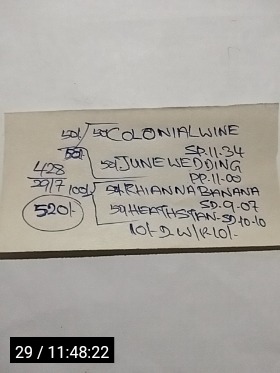 50/- 50/- COLONIAL WINE
50/- SD.11-34
428 50/- JUNE WEDDING
29/7 PP.11-00
100/- 50/- RHIANNA BANANA
520/- SD.9-07
50/- HEATHSTAN-SD 10-10
10/- D.W/R 10/-
29 / 11:48:22